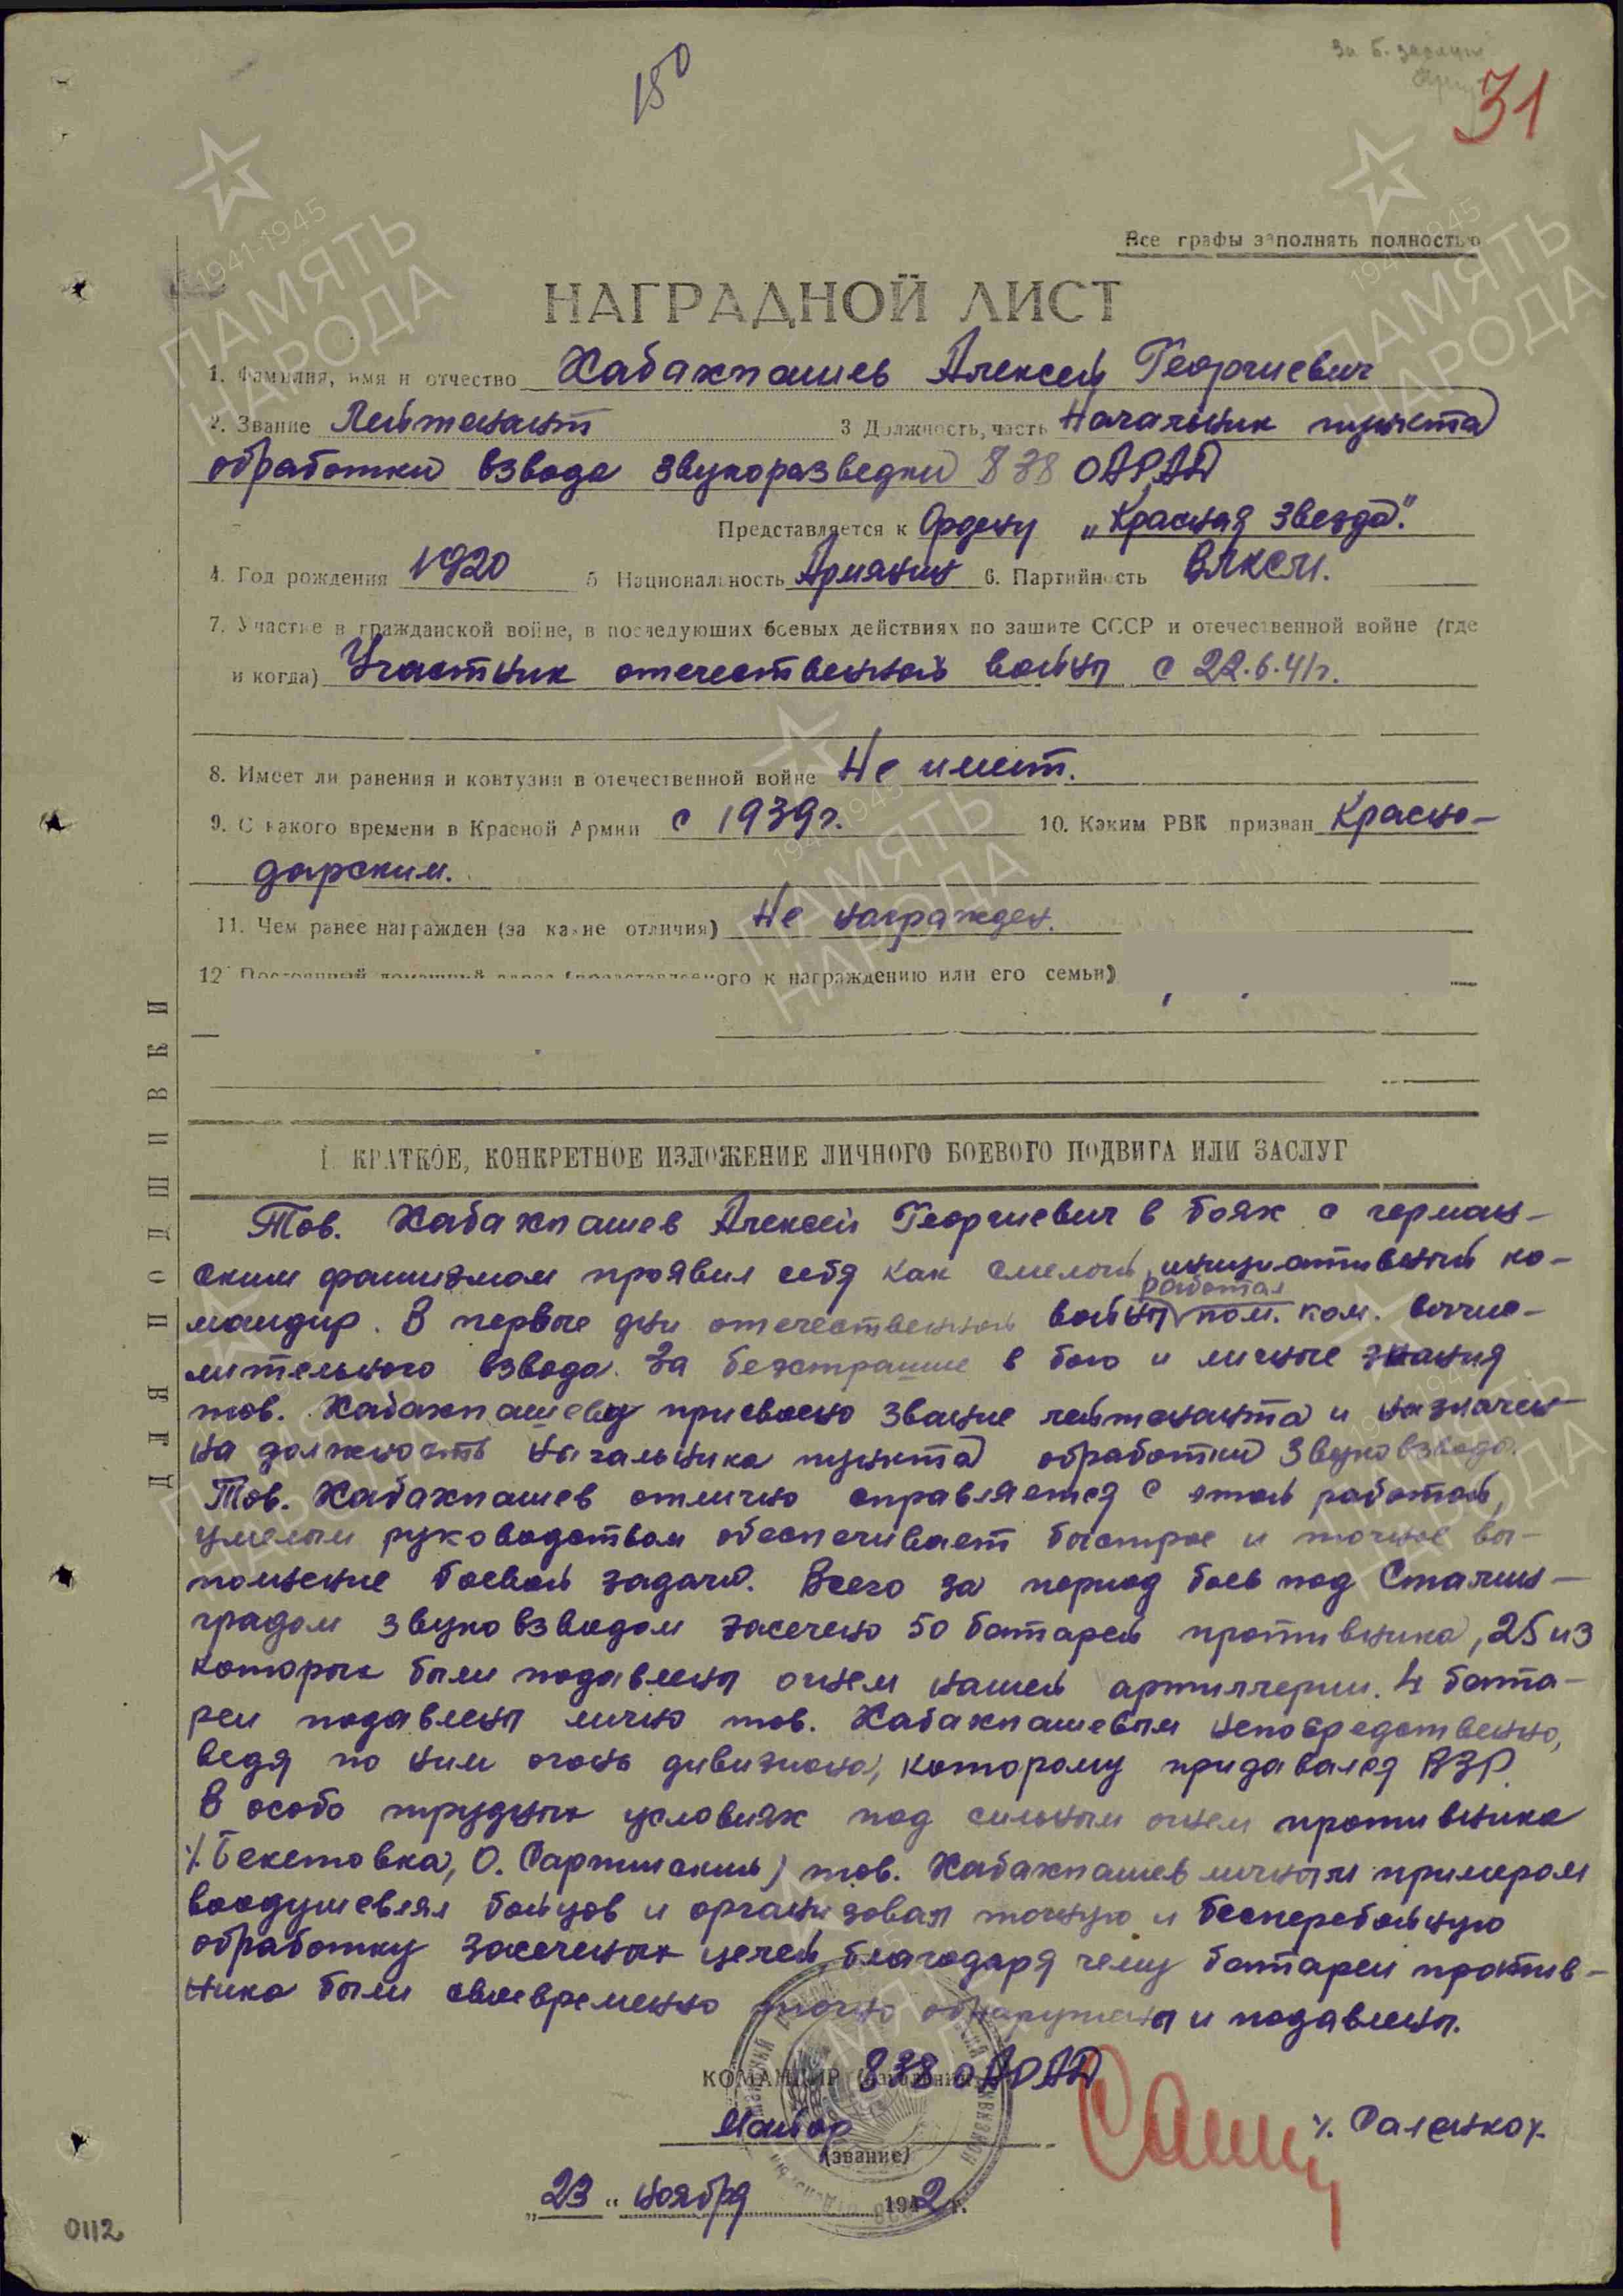 150
За б. заслуги
31
Все графы заполнять полностью
НАГРАДНОЙ ЛИСТ
1. Фамилия, имя и отчество Хабахпашев Алексей Георгиевич
2. Звание Лейтенант 3 Должность, часть Начальник пункта
обработки взвода звукоразведки 838 ОАРАД
Представляется к Ордену „Красная Звезда".
4. Год рождения 1920 5 Национальность Армянин 6. Партийность ВЛКСМ.
7. Участие в гражданской войне, в последующих боевых действиях по защите СССР и отечественной войне (где
и когда) Участник отечественной войны с 22.6.41г.
8. Имеет ли ранения и контузии в отечественной войне Не имеет.
9. С какого времени в Красной Армии с 1939г. 10. Каким РВК призван Красно-
дарским.
11. Чем ранее награжден (за какие отличия) Не награжден.
12. Постоянный домашний адрес (представляемого к награждению или его семьи)
ДЛЯ ПОДШИВКИ
I. КРАТКОЕ, КОНКРЕТНОЕ ИЗЛОЖЕНИЕ ЛИЧНОГО БОЕВОГО ПОДВИГА ИЛИ ЗАСЛУГ
Тов. Хабахпашев Алексей Георгиевич в боях с герман-
ским фашизмом проявил себя как смелый, инициативный ко-
работал
мандир. В первые дни отечественной войны пом. ком. вычис-
лительного взвода. За безстрашие в бою и личные знания
тов. Хабахпашеву присвоено звание лейтенанта и назначен
на должность начальника пункта обработки Звуковзвода.
Тов. Хабахпашев отлично справляется с этой работой,
умелым руководством обеспечивает быстрое и точное вы-
полнение боевой задачи. Всего за период боев под Сталин-
градом звуковзводом засечено 50 батарей противника, 25 из
которых были подавлены огнем нашей артиллерии. 4 бата-
реи подавлены лично тов. Хабахпашевым непосредственно,
ведя по ним огонь дивизиона, которому придавался ВЗР.
В особо трудных условиях под сильным огнем противника
/. Бекетовка, О. Сарпинский/ тов. Хабахпашев личным примером
воодушевлял бойцов и организовал точную и бесперебойную
обработку засеченых целей благодаря чему батареи против-
ника были своевременно точно обнаружены и подавлены.
КОМАНДИР 838 ОАРАД
Майор /. Саленко/.
(звание)
„23" ноября 1942 г.
0112
1941-1945
ПАМЯТЬ
НАРОДА